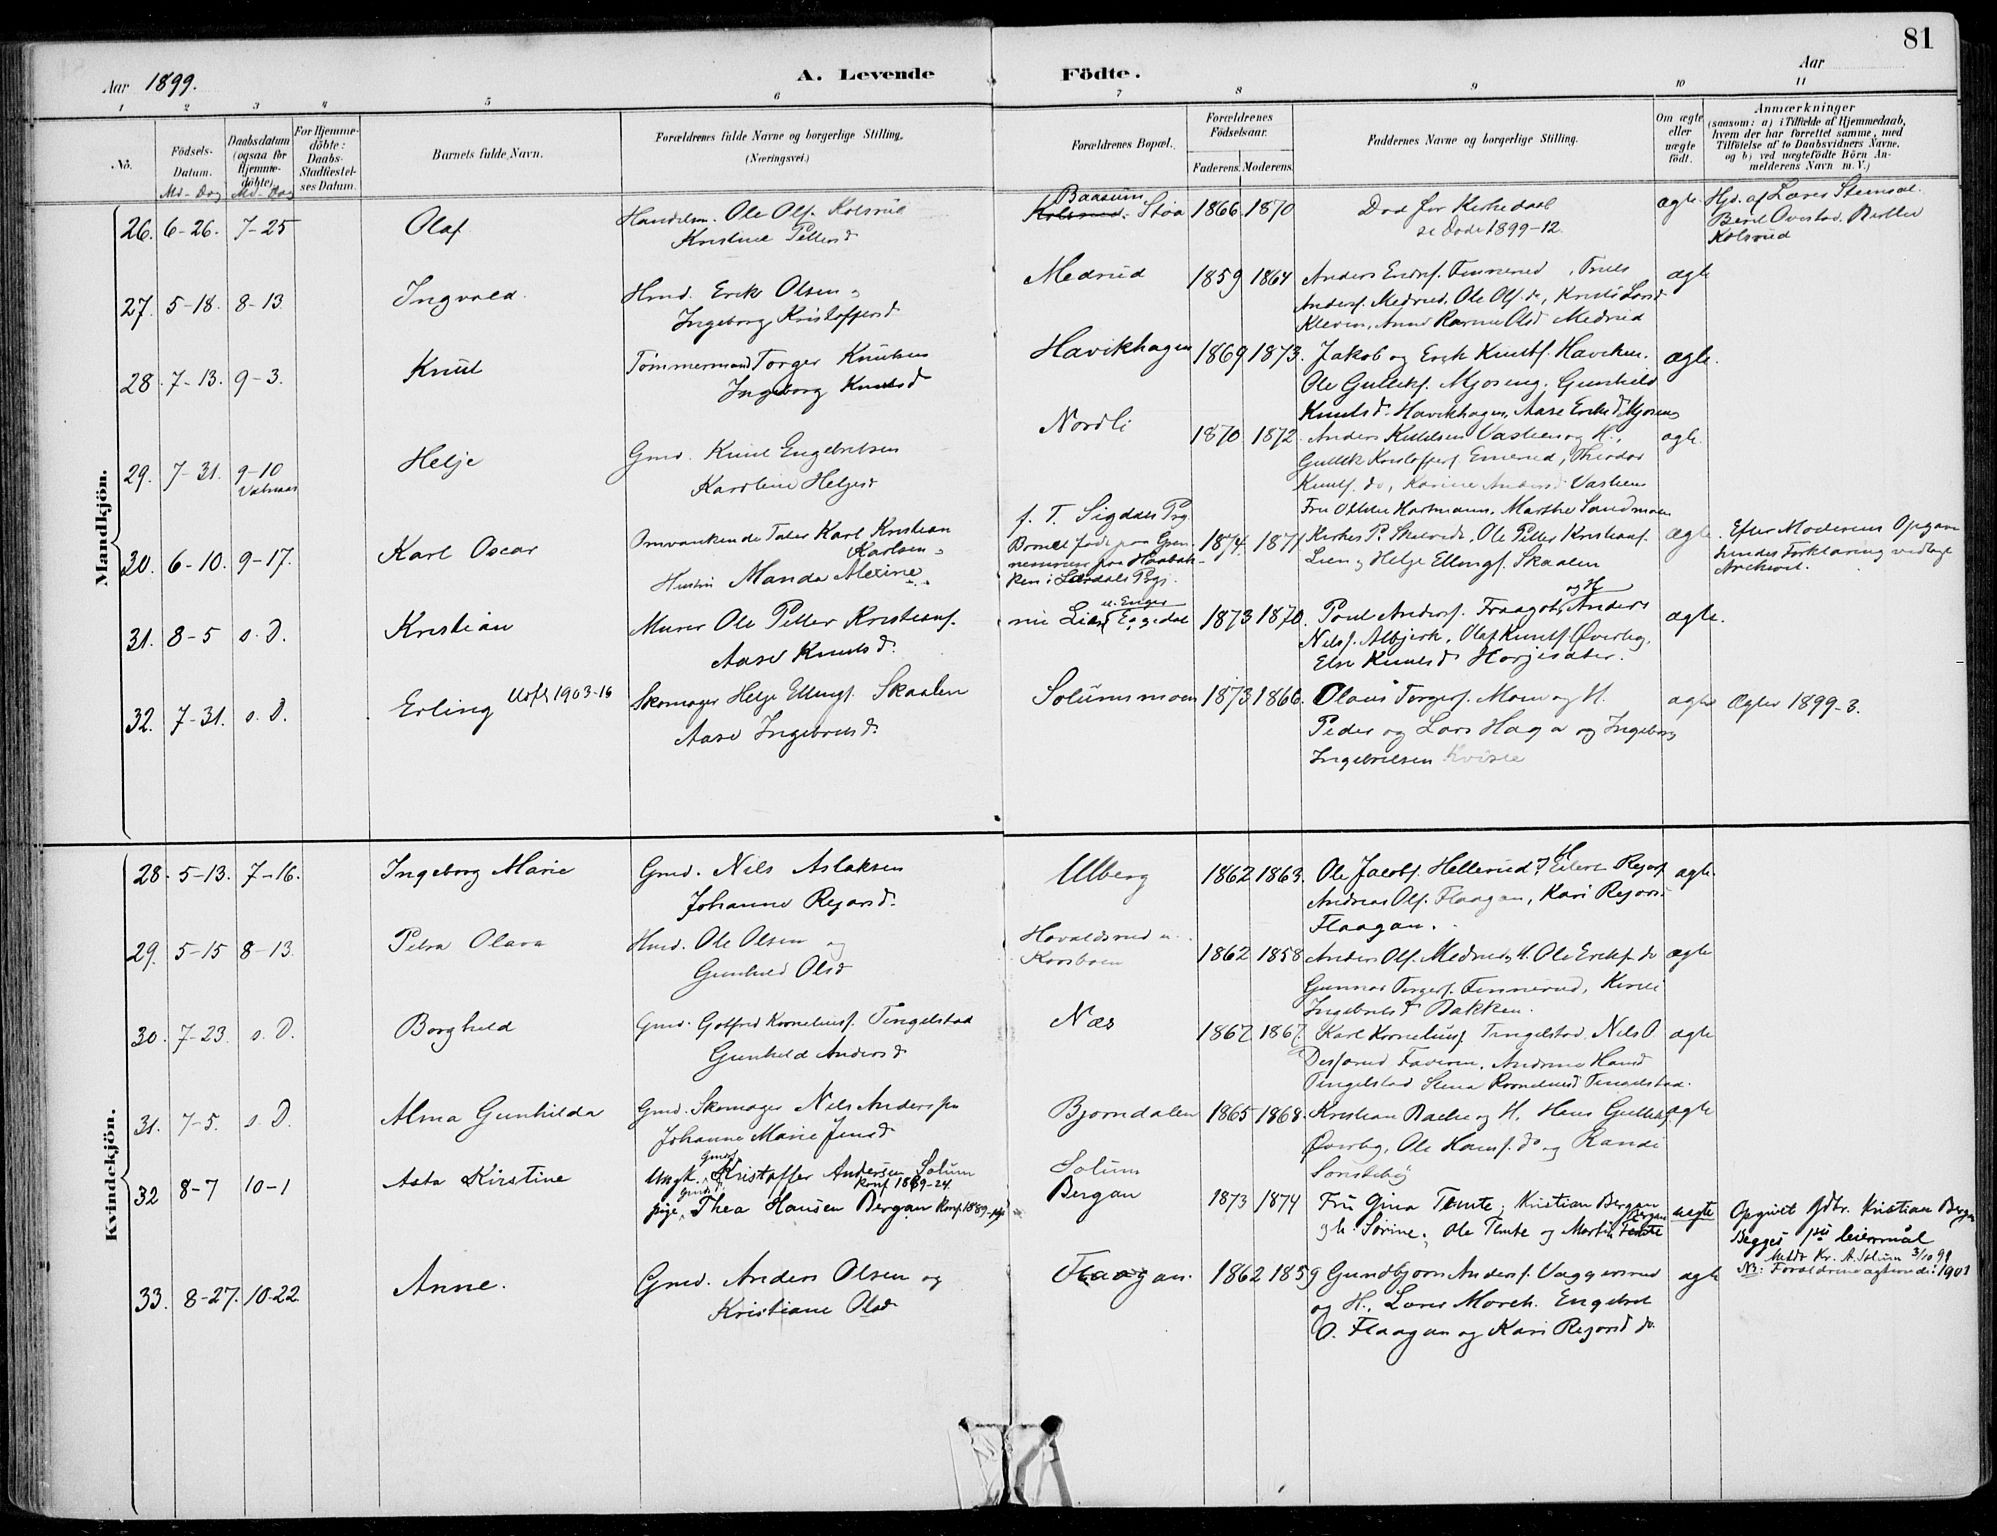 81
Aar 1899.
A. Levende Födte.
Aar
1 2 3 4 5 6 7 8 9 10 11
No.
Födsels-Datum.
Md - Dag
Daabsdatum (ogsaa for Hjemme-döbte)
Md - Dag
For Hjemme-döbte: Daabs-Stadfæstel-ses Datum.
Barnets fulde Navn.
Forældrenes fulde Navne og borgerlige Stilling. (Næringsvei.)
Forældrenes Bopæl.
Forældrenes Födselsaar.
Faderens. Moderens.
Faddernes Navne og borgerlige Stilling.
Om ægte eller uægte födt.
Anmærkninger
(saasom: a) i Tilfælde af Hjemmedaab,
hvem der har forrettet samme, med
Tilföielse af to Daabsvidners Navne,
og b) ved uægtefödte Börn An-
melderens Navn m. V.)
Mandkjön.
26. 6-26. 7-25 Olaf
Handelsm. Ole Ols. Kolsrud
Kristine Petersd
Baasum
Kolsrud. Stoa 1866. 1870
Død før Kirkedaab
se Døde 1899-12.
ægte. Hjd. af Lærer Stemsal.
Kolsrud
27. 5-18. 8-13. Ingvald.
Hmd. Erik Olsen
Ingeborg Kristoffersd
Medrud 1859 1864
Anders Eriks. Finnerud, Truls
Anders. Medrud, Ole Ols. do, Kristi Larsd
Kleven, Anne Karine Olsd Medrud
ægte
28. 7-13. 9-3. Knut
Tømmermand Torger Knutsen
Ingeborg Knutsd
Havikhagen 1869 1873.
Jakob og Erik Knuts. Haviken.
Ole Gulliks. Mjøseng. Gunhild
Knutsd. Havikhagen, Aase Eriksd Mjøseng
ægte.
29. 7-31. 9-10 Helje
Gmd. Knut Engebretsen
Karoline Helgesd
Nordli 1870 1872.
Anders Knutsen Vasteen og H.,
Gullik Kristoffers. Enerud, Theodor
Knuts. do, Karine Andersd Vasteen
ægte.
30. 6-10. 9-17. Karl Oscar
Omvankende Tater Karl Kristian
Karlsen
Hustru Manda Alexine
f. T. Sigdals Pg.
Barnet født paa
ken i Lærdals Pgj.
1874. 1871
Fru Hartmann, Marthe Sandmoen
Kirkes. P. Skalevd, Ole Petter Kristians.
Lien, Helge Ellings. Skaalen
ægte. Efter Moderens Opgave
hendes Forklaring vedlagt
Archivet.
31. 8-5 s. D. Kristian
Murer Ole Petter Kristians.
Aase Knutsd.
Lien Eggedal 1873 1870.
Poul Anders. Fraagot og H, Anders
Nils. Albjerk, Olaf Knuts. Øverby,
Else Knutsd Horjesæter.
ægte.
32. 7-31. s. D. Erling Udfl. 1903-16
Skomager Helge Ellings. Skaalen
Aase Ingebretsd.
Solumsmoen 1873 1866.
Olaus Torgers. Moen og H.
Peder og Lars Haga og Ingeborg
Ingebretsen Kvisle
ægte Ægtev 1899-3.
Kvindekjön.
28. 5-13. 7-16. Ingeborg Marie
Gmd. Nils Aslaksen
Johanne Regarsd.
Ulberg 1862 1863.
Ole Jacobs. Hellerud og H, Eilert Regars
Andreas Ols. Flaagan, Kari Regarsd
Flaagan.
ægte.
29. 5-15 8-13. Petra Olava
Hmd. Ole Olsen og
Gunhild Olsd
Hovaldsrud u.
Korsboen
1862 1858
Anders Ols. Medrud, H. Ole Eriks. do
Gunnar Torgers. Finnerud, Kirsti
Ingebretsd Bakken.
ægte
30. 7-23. s. D. Borghild
Gmd. Gotfred Kornelius. Tingelstad
Gunhild Andersd
Næs 1862 1867.
Karl Kornelius. Tingelstad, Nils O.
Tingelstad Stena Korneliusd Tingelstad.
ægte
31. 7-5. s. D. Alma Gunhilda
Gmd. Skomager Nils Anderssen
Johanne Marie Jensd
Bjørndalen 1865 1868.
Kristian Bache og H. Hans Gulliks.
Øverby, Ole Hans. do og Randi
Sønstebø
ægte
32 8-7 10-1 Asta Kirstine
Ungk. Gmds. Kristoffer Andersen Solum
konf 1889-24.
pige Gmds. Thea Hansen Bergan konf. 1889
Solum
Bergan
1873 1874
Fru Gina Temte, Kristian Bergan
gk. Sørine, Ole Temte og Martin Temte Bergan
uægte Opgivet Gdbr. Kristian Bergan
Begges 1ste leiermål
Meldt Kr. A. Solum 3/10 99
NB: Forældrene ægteviede: 1901
33. 8-27. 10-22. Anne.
Gmd. Anders Olsen og
Kristiane Olsd
Flaagan. 1862 1859
Gundbjørn Anders. Vaggersrud
og H., Lars March. Engebret
O. Flaagan og Kari Regarsd do.
ægte